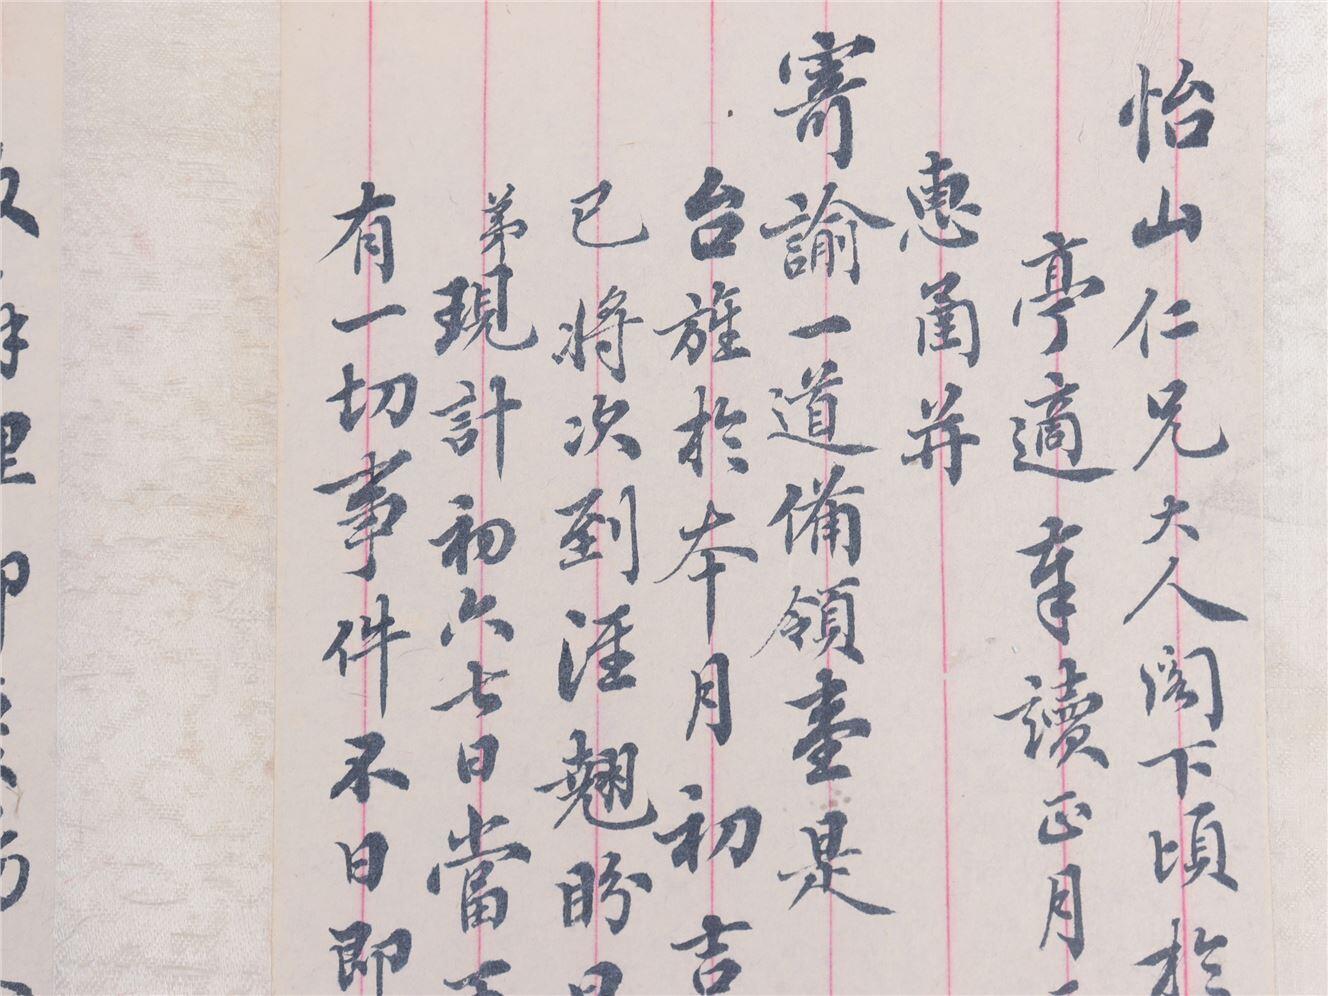 怡山仁兄大人閣下頃於
亭適奉讀正月
惠圅并
寄諭一道備領壹是
台旌於本月初吉
已將次到涯翹盼日
弟現計初六七日當
有一切事件不日即